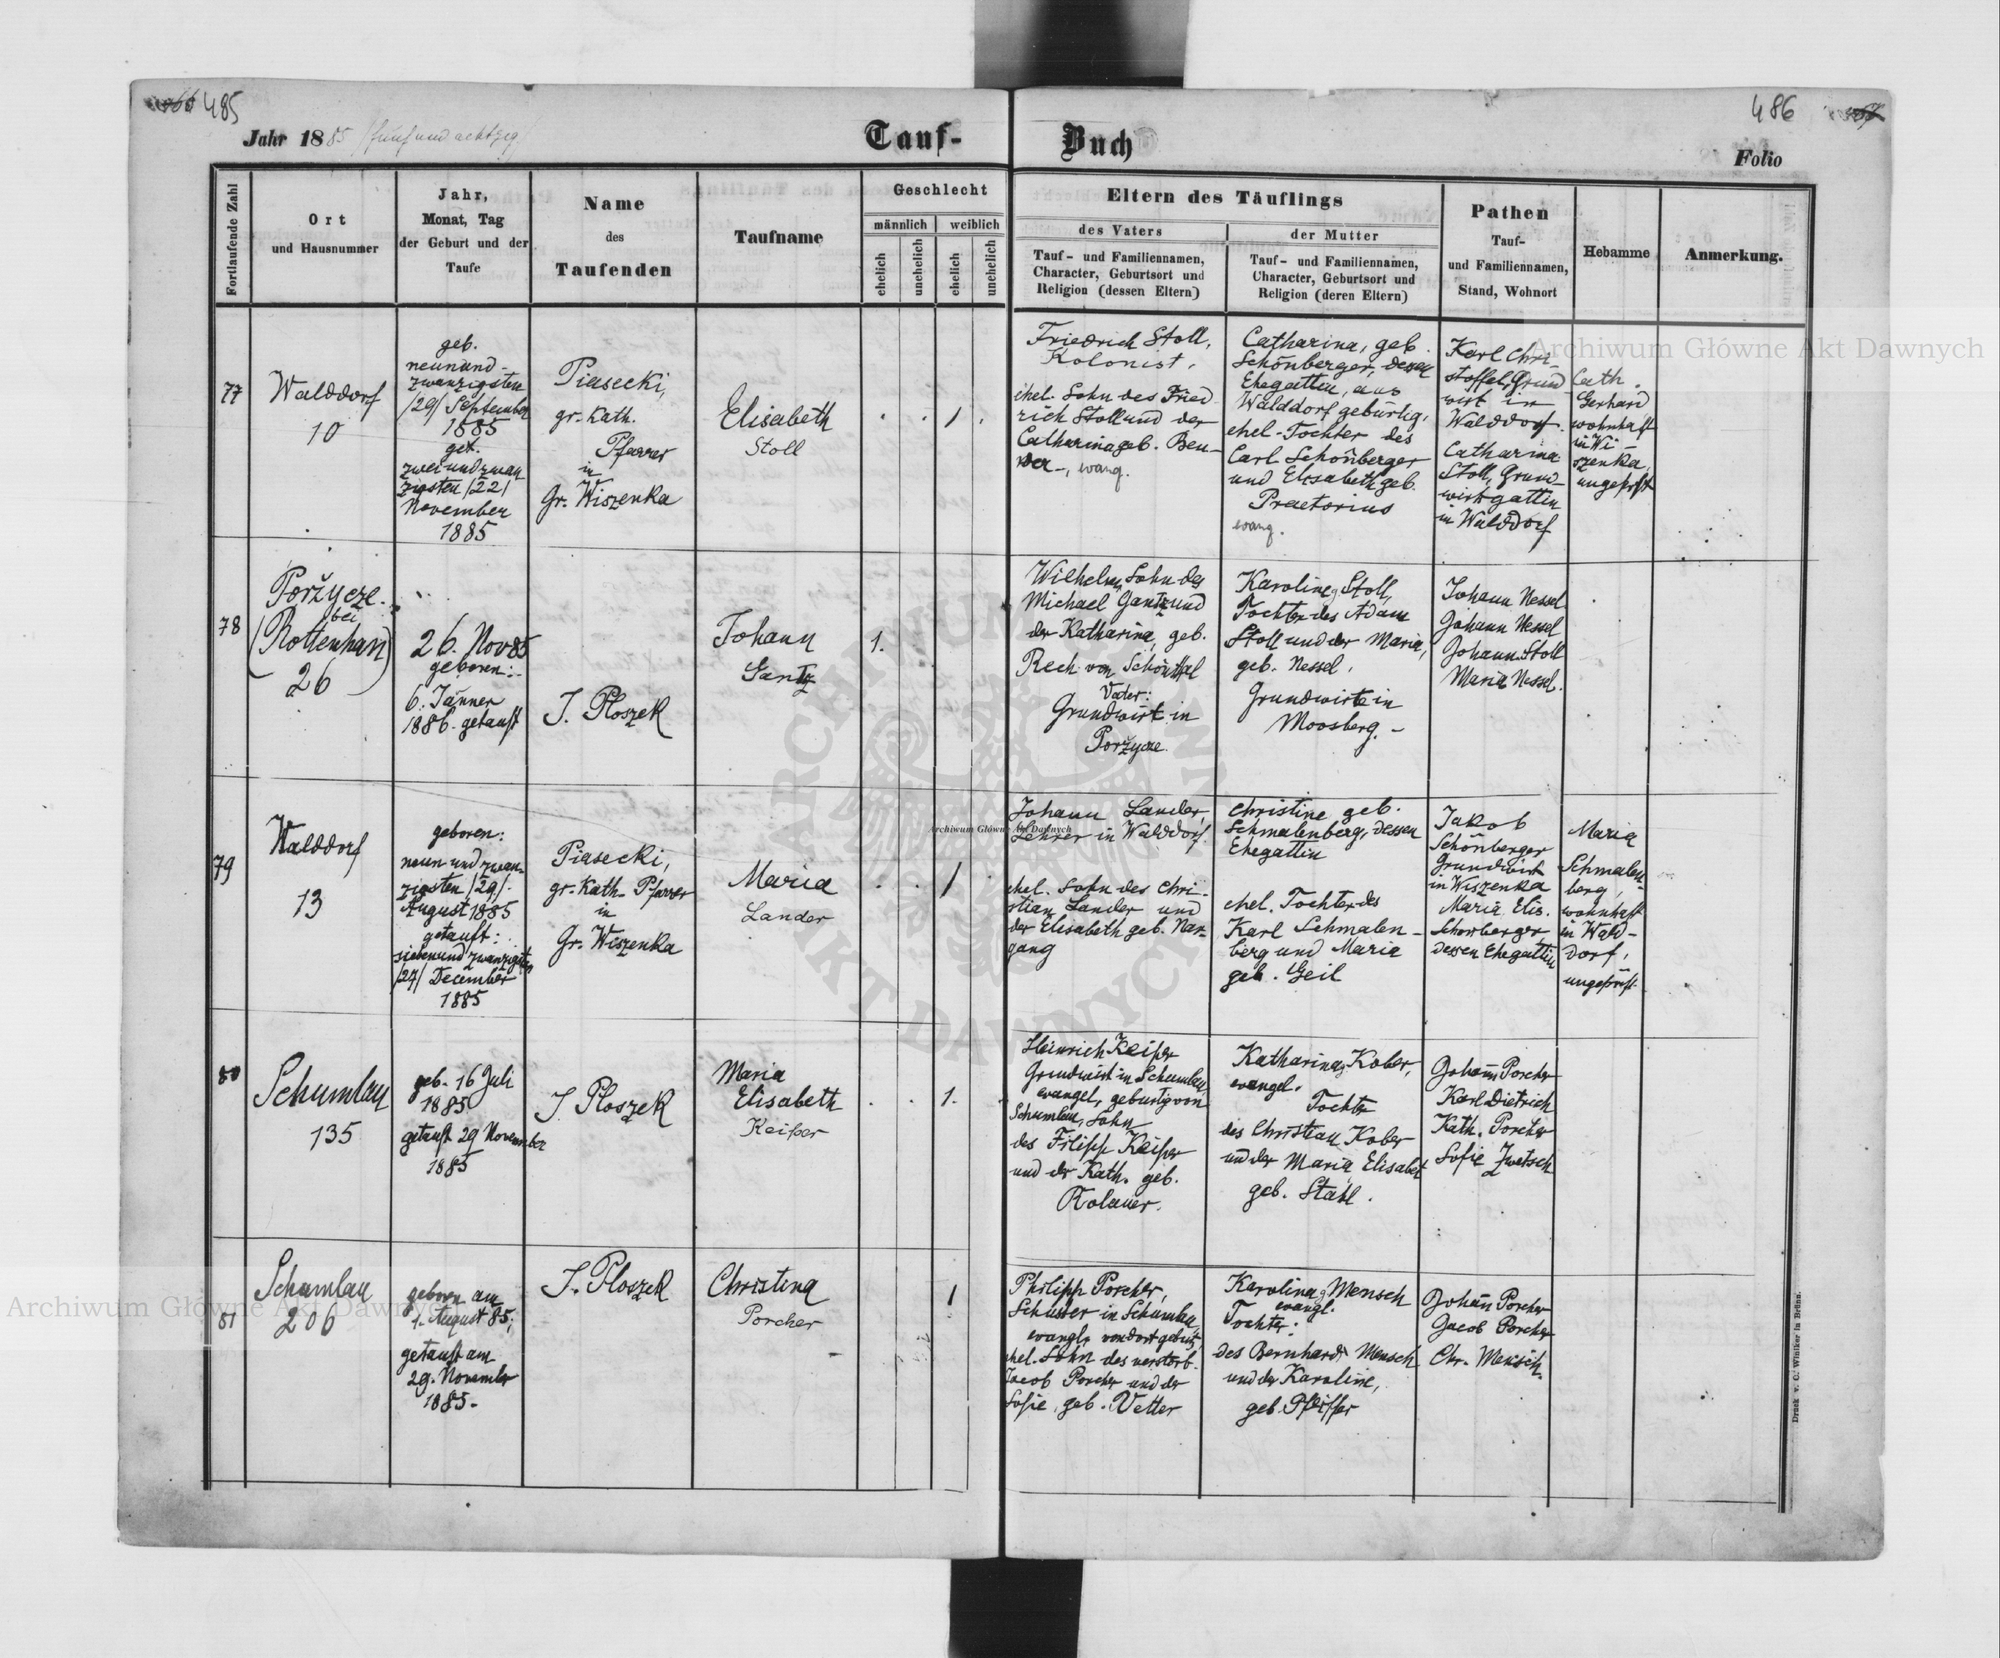 485
486
Jahr 1885 /fünfundachtzig/
Tauf-
Buch
Folio
Fortlaufende Zahl
Ort
und Hausnummer
Jahr,
Monat, Tag
der Geburt und der
Taufe
Name
des
Taufenden
Taufname
Geschlecht
männlich
weiblich
ehelich
unehelich
ehelich
unehelich
Eltern des Täuflings
des Vaters
Tauf- und Familiennamen,
Character, Geburtsort und
Religion (dessen Eltern)
der Mutter
Tauf- und Familiennamen,
Character, Geburtsort und
Religion (deren Eltern)
Pathen
Tauf-
und Familiennamen,
Stand, Wohnort
Hebamme
Anmerkung.
77
Walddorf
10
geb.
neunund-
zwanzigsten
/29/ September
1885
get.
zweiundzwan
zigsten /22/
November
1885
Piasecki,
gr. Kath.
Pfarrer
in
Gr. Wiszenka
Elisabeth
Stoll
1
Friedrich Stoll,
Kolonist,
ehel. Sohn des Fried-
rich Stoll und der
Catharina geb. Ben-
der-, evang.
Catharina, geb.
Schönberger, dessen
Ehegattin, aus
Walddorf gebürtig,
ehel. Tochter des
Carl Schönberger
und Elisabeth geb.
Praetorius
evang.
Karl Chri-
stoffel, Grund
wirt in
Walddorf.
Catharina
Stoll, Grund-
wirtsgattin
in Walddorf
Cath.
Gerhard
wohnhaft
in Wi-
szenka,
ungeprüft
78
Poržycze
bei
(Rottenhan)
26
26. Nov 85
geboren:
6. Jänner
1886. getauft
J. Ploszek
Johann
Gantz
1.
Wilhelm, Sohn des
Michael Gantz und
der Katharina, geb.
Rech von Schönthal
Vater:
Grundwirt in
Poržycze.
Karoline, Stoll,
Tochter des Adam
Stoll und der Maria,
geb. Nessel.
Grundwirte in
Moosberg. -
Johann Nessel
Johann Nessel
Johann Stoll
Maria Nessel.
79
Walddorf
13
geboren:
neun und zwan-
zigsten /29/.
August 1885
getauft:
siebenundzwanzigsten
/27/ December
1885
Piasecki,
gr. Kath. Pfarrer
in
Gr. Wiszenka
Maria
Lander
1
Johann Lander,
Lehrer in Walddorf.
ehel. Sohn des Chri-
stian Lander und
der Elisabeth geb. Nar-
gang
Christine geb.
Schmalenberg, dessen
Ehegattin
ehel. Tochter des
Karl Schmalen-
berg und Maria
geb. Geil
Jakob
Schönberger
Grundwirt
in Wiszenka
Maria Elis.
Schönberger
dessen Ehegattin
Maria
Schmalen-
berg,
wohnhaft
in Wald-
dorf,
ungeprüft.
80
Schumlau
135
geb. 16 Juli
1885
getauft 29 November
1885
J. Ploszek
Maria
Elisabeth
Keißer
1.
Heinrich Keißer
Grundwirt in Schumlau,
evangel., gebürtig von
Schumlau, Sohn
des Filipp Keißer
und der Kath. geb.
Rolauer.
Katharina, Kober,
evangel.
Tochter
des Christian Kober
und der Maria Elisabet
geb. Stahl.
Johann Porcher
Karl Dietrich
Kath. Porcher
Sofie Zwetsch
81
Schumlau
206
geboren am
1. August 85;
getauft am
29. November
1885.-
J. Ploszek
Christina
Porcher
1
Philipp Porcher,
Schuster in Schumlau,
evangl. von dort gebürt.
ehel. Sohn des verstorb.
Jacob Porcher und der
Sofie, geb. Vetter
Karolina, Mensch
evangl.
Tochter:
des Bernhard Mensch
und der Karoline,
geb. Pfeiffer
Johann Porcher
Jacob Porcher
Chr. Mensch.
Druck v. C. Winiker in Brünn.
Archiwum Główne Akt Dawnych
Archiwum Główne Akt Dawnych
Archiwum Główne Akt Dawnych
ARCHIWUM GŁÓWNE AKT DAWNYCH